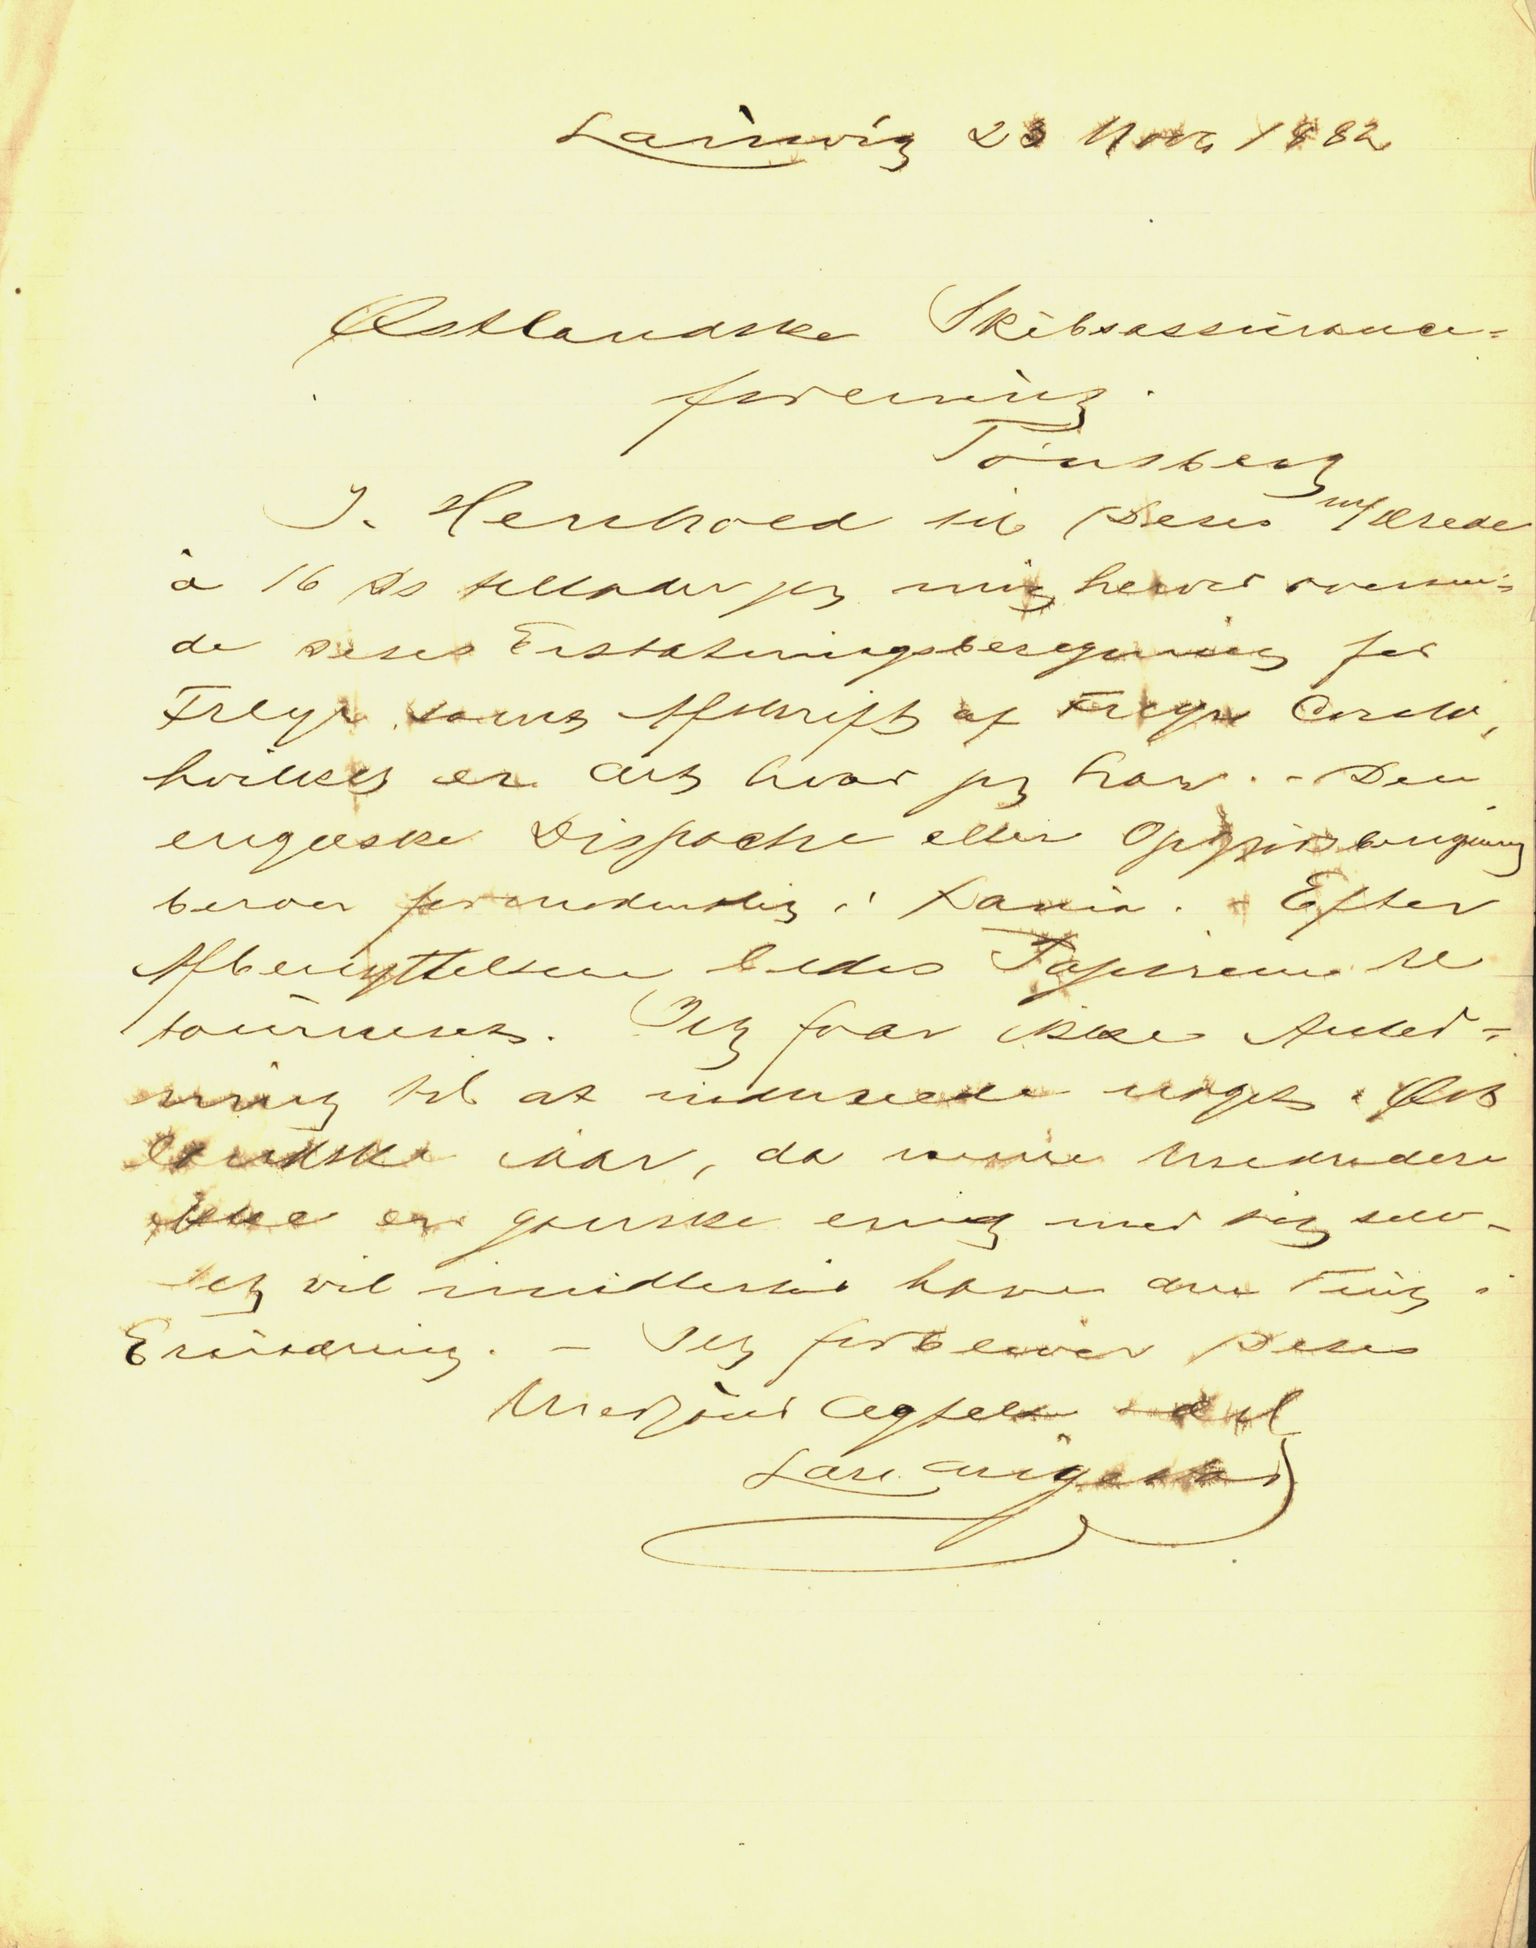 Laurvig 23 Novb 1882
Østlandske Skibsassurance-
forening.
Tønsberg
I. Henhold til Deres m/ Ærede
à 16 Ds tillader jeg mig herved oversen-
de deres Erstatningsberegning for
Freyr samt Afskrift af Freyrs
hvilket er alt hvad jeg har. - Den
engelske Dispache eller
beroer formodentlig i Xania. - Efter
Afbenyttelsen bedes Papirerne re
tourneret. Jeg faar ikke Anled-
ning til at indmelde noget i Øst
landske iaar, da mine Medredere
ikke er ganske enig med sig selv -
Jeg vil imidlertid have den Ting i
Erindring. - Jeg forbliver Deres
Med Agtelse
Lars